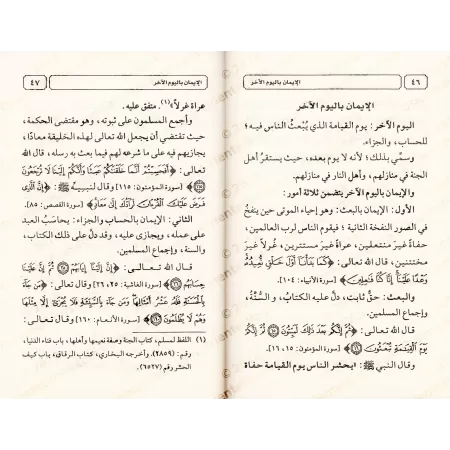 ٤٦
الإيمان باليوم الآخر
الإيمان باليوم الآخر
اليوم الآخر: يوم القيامة الذي يُبْعَثُ الناس فيه؛
للحساب، والجزاء.
وسمِّي بذلك؛ لأنه لا يوم بعده، حيث يستقرُّ أهل
الجنة في منازلهم، وأهل النار في منازلهم.
والإيمان باليوم الآخر يتضمن ثلاثة أمور:
الأول: الإيمان بالبعث: وهو إحياء الموتى حين ينفخ
في الصور النفخة الثانية؛ فيقوم الناس لرب العالمين،
حفاةً غيرَ منتعلين، عراةً غير مستترين، غُرلاً غيرَ
مختتنين، قال الله تعالى: ﴿كَمَا بَدَأْنَا أَوَّلَ خَلْقٍ نُّعِيدُهُ
وَعْدًا عَلَيْنَا إِنَّا كُنَّا فَاعِلِينَ﴾ [سورة الأنبياء: ١٠٤]
والبعث: حقٌّ ثابت، دلَّ عليه الكتابُ، والسُّنَّةُ،
وإجماع المسلمين.
قال الله تعالى: ﴿ثُمَّ إِنَّكُم بَعْدَ ذَٰلِكَ لَمَيِّتُونَ ۝١٥ ثُمَّ إِنَّكُمْ
يَوْمَ الْقِيَامَةِ تُبْعَثُونَ ۝١٦﴾ [سورة المؤمنون: ١٥، ١٦].
وقال النبي ﷺ: «يحشر الناس يوم القيامة حفاة
٤٧
الإيمان باليوم الآخر
عراة غرلاً»(١). متفق عليه.
وأجمع المسلمون على ثبوته، وهو مقتضى الحكمة،
حيث تقتضي أن يجعل الله تعالى لهذه الخليقة معادًا،
يجازيهم فيه على ما شرعه لهم فيما بعث به رسله، قال الله
تعالى: ﴿أَفَحَسِبْتُمْ أَنَّمَا خَلَقْنَاكُمْ عَبَثًا وَأَنَّكُمْ إِلَيْنَا لَا تُرْجَعُونَ
۝١١٥﴾ [سورة المؤمنون: ١١٥] وقال لنبيه ﷺ: ﴿إِنَّ الَّذِي
فَرَضَ عَلَيْكَ الْقُرْآنَ لَرَادُّكَ إِلَىٰ مَعَادٍ﴾ [سورة القصص: ٨٥].
الثاني: الإيمان بالحساب والجزاء: يحاسَب العبد
على عمله، ويجازى عليه، وقد دلَّ على ذلك الكتاب،
والسنة، وإجماع المسلمين.
قال الله تعالى: ﴿إِنَّ إِلَيْنَا إِيَابَهُمْ ۝٢٥ ثُمَّ إِنَّ عَلَيْنَا
حِسَابَهُم ۝٢٦﴾ [سورة الغاشية: ٢٥، ٢٦] وقال تعالى: ﴿مَن جَاءَ
بِالْحَسَنَةِ فَلَهُ عَشْرُ أَمْثَالِهَا وَمَن جَاءَ بِالسَّيِّئَةِ فَلَا يُجْزَىٰ إِلَّا مِثْلَهَا
وَهُمْ لَا يُظْلَمُونَ ۝١٦٠﴾ [سورة الأنعام: ١٦٠] وقال تعالى:
(١) اللفظ لمسلم، كتاب الجنة وصفة نعيمها وأهلها، باب فناء الدنيا،
رقم: (٢٨٥٩). وأخرجه البخاري، كتاب الرقاق، باب كيف
الحشر رقم (٦٥٢٧)